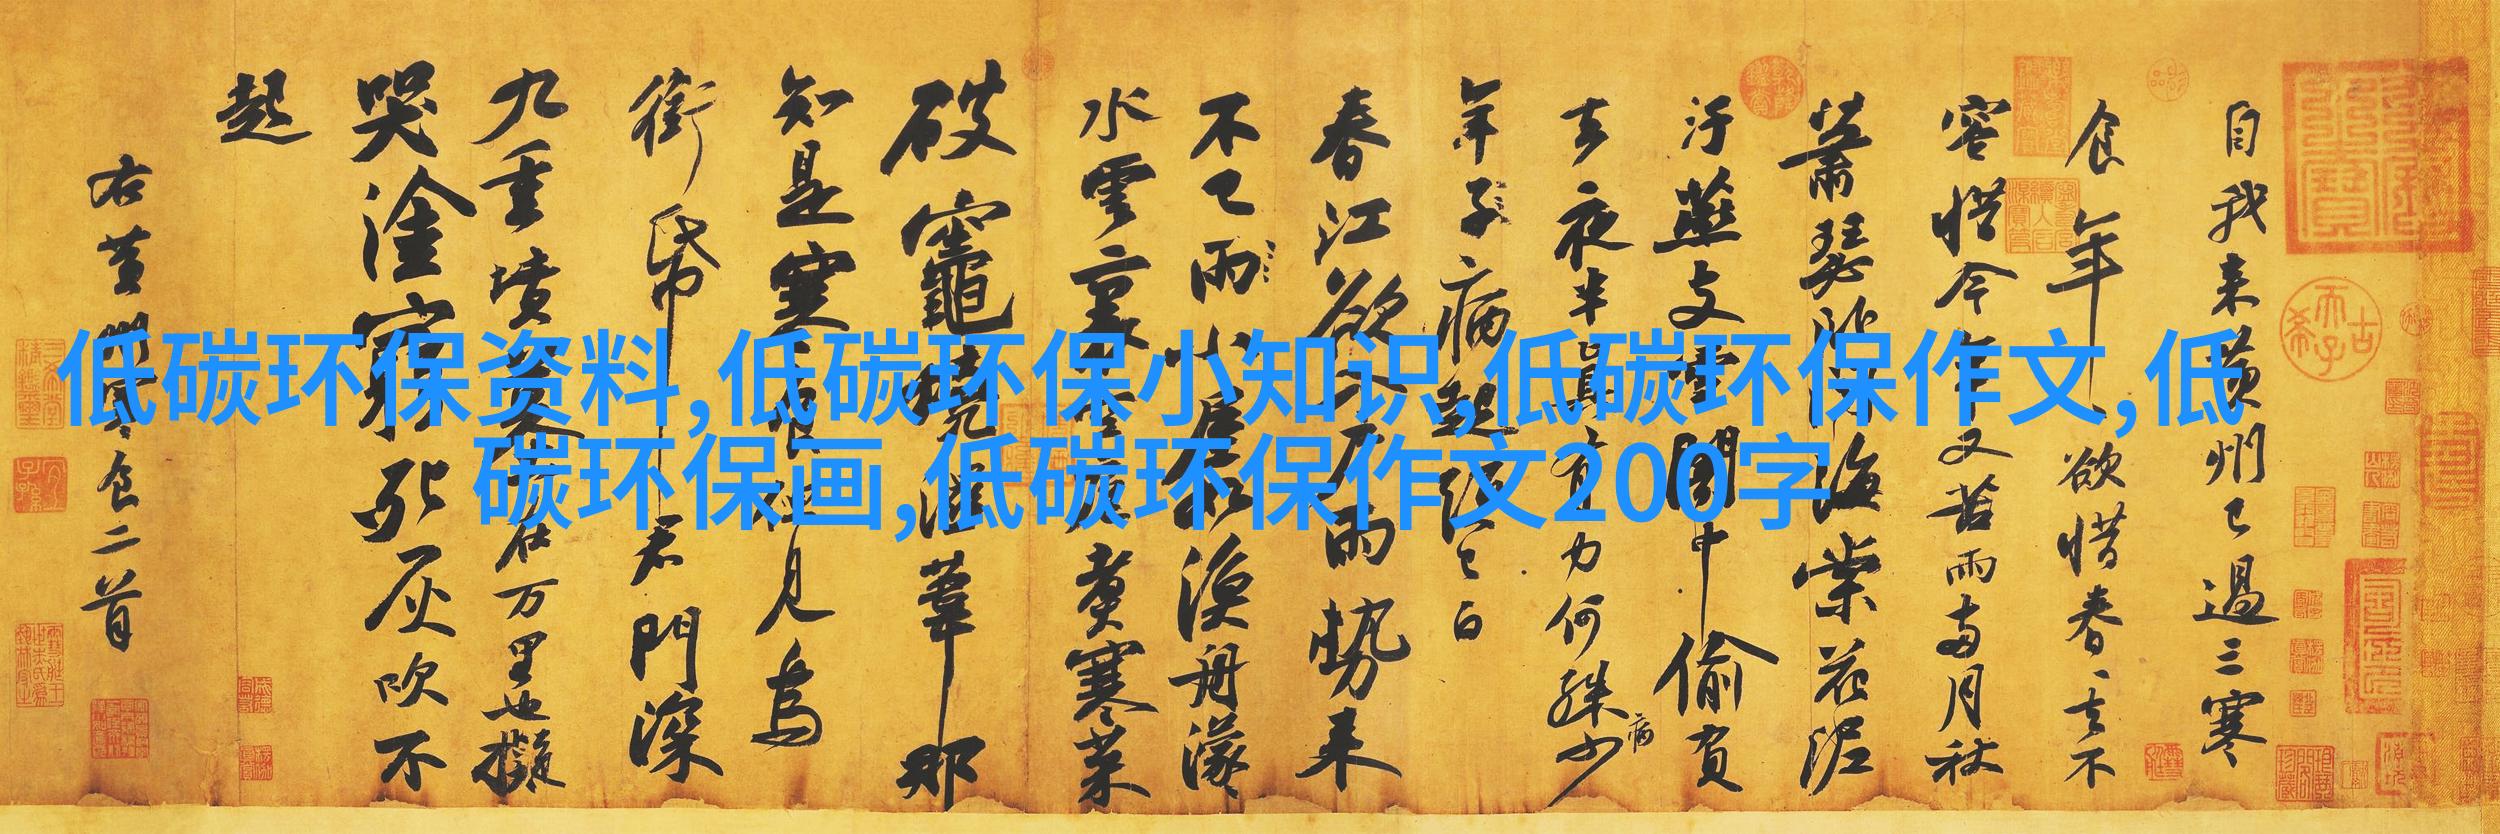 低碳环保资料,低碳环保小知识,低碳环保作文,低
碳环保画,低碳环保作文200字
自我来黄州已過三寒
食年欲惜春去不
容惜今年又苦雨两月秋
蕭瑟卧闻海棠花泥
汙燕支雪闇中偷負
去夜半真有力何殊少病
年子病起须已白
春江欲入户雨勢来
不已雨小屋如漁舟濛
水雲裏空庖煮寒菜
破竈燒湿葦那
知是寒食但见烏
銜帋君門深
九重墳墓在万里也擬
哭塗窮死灰吹不
起
右黄州寒食二首